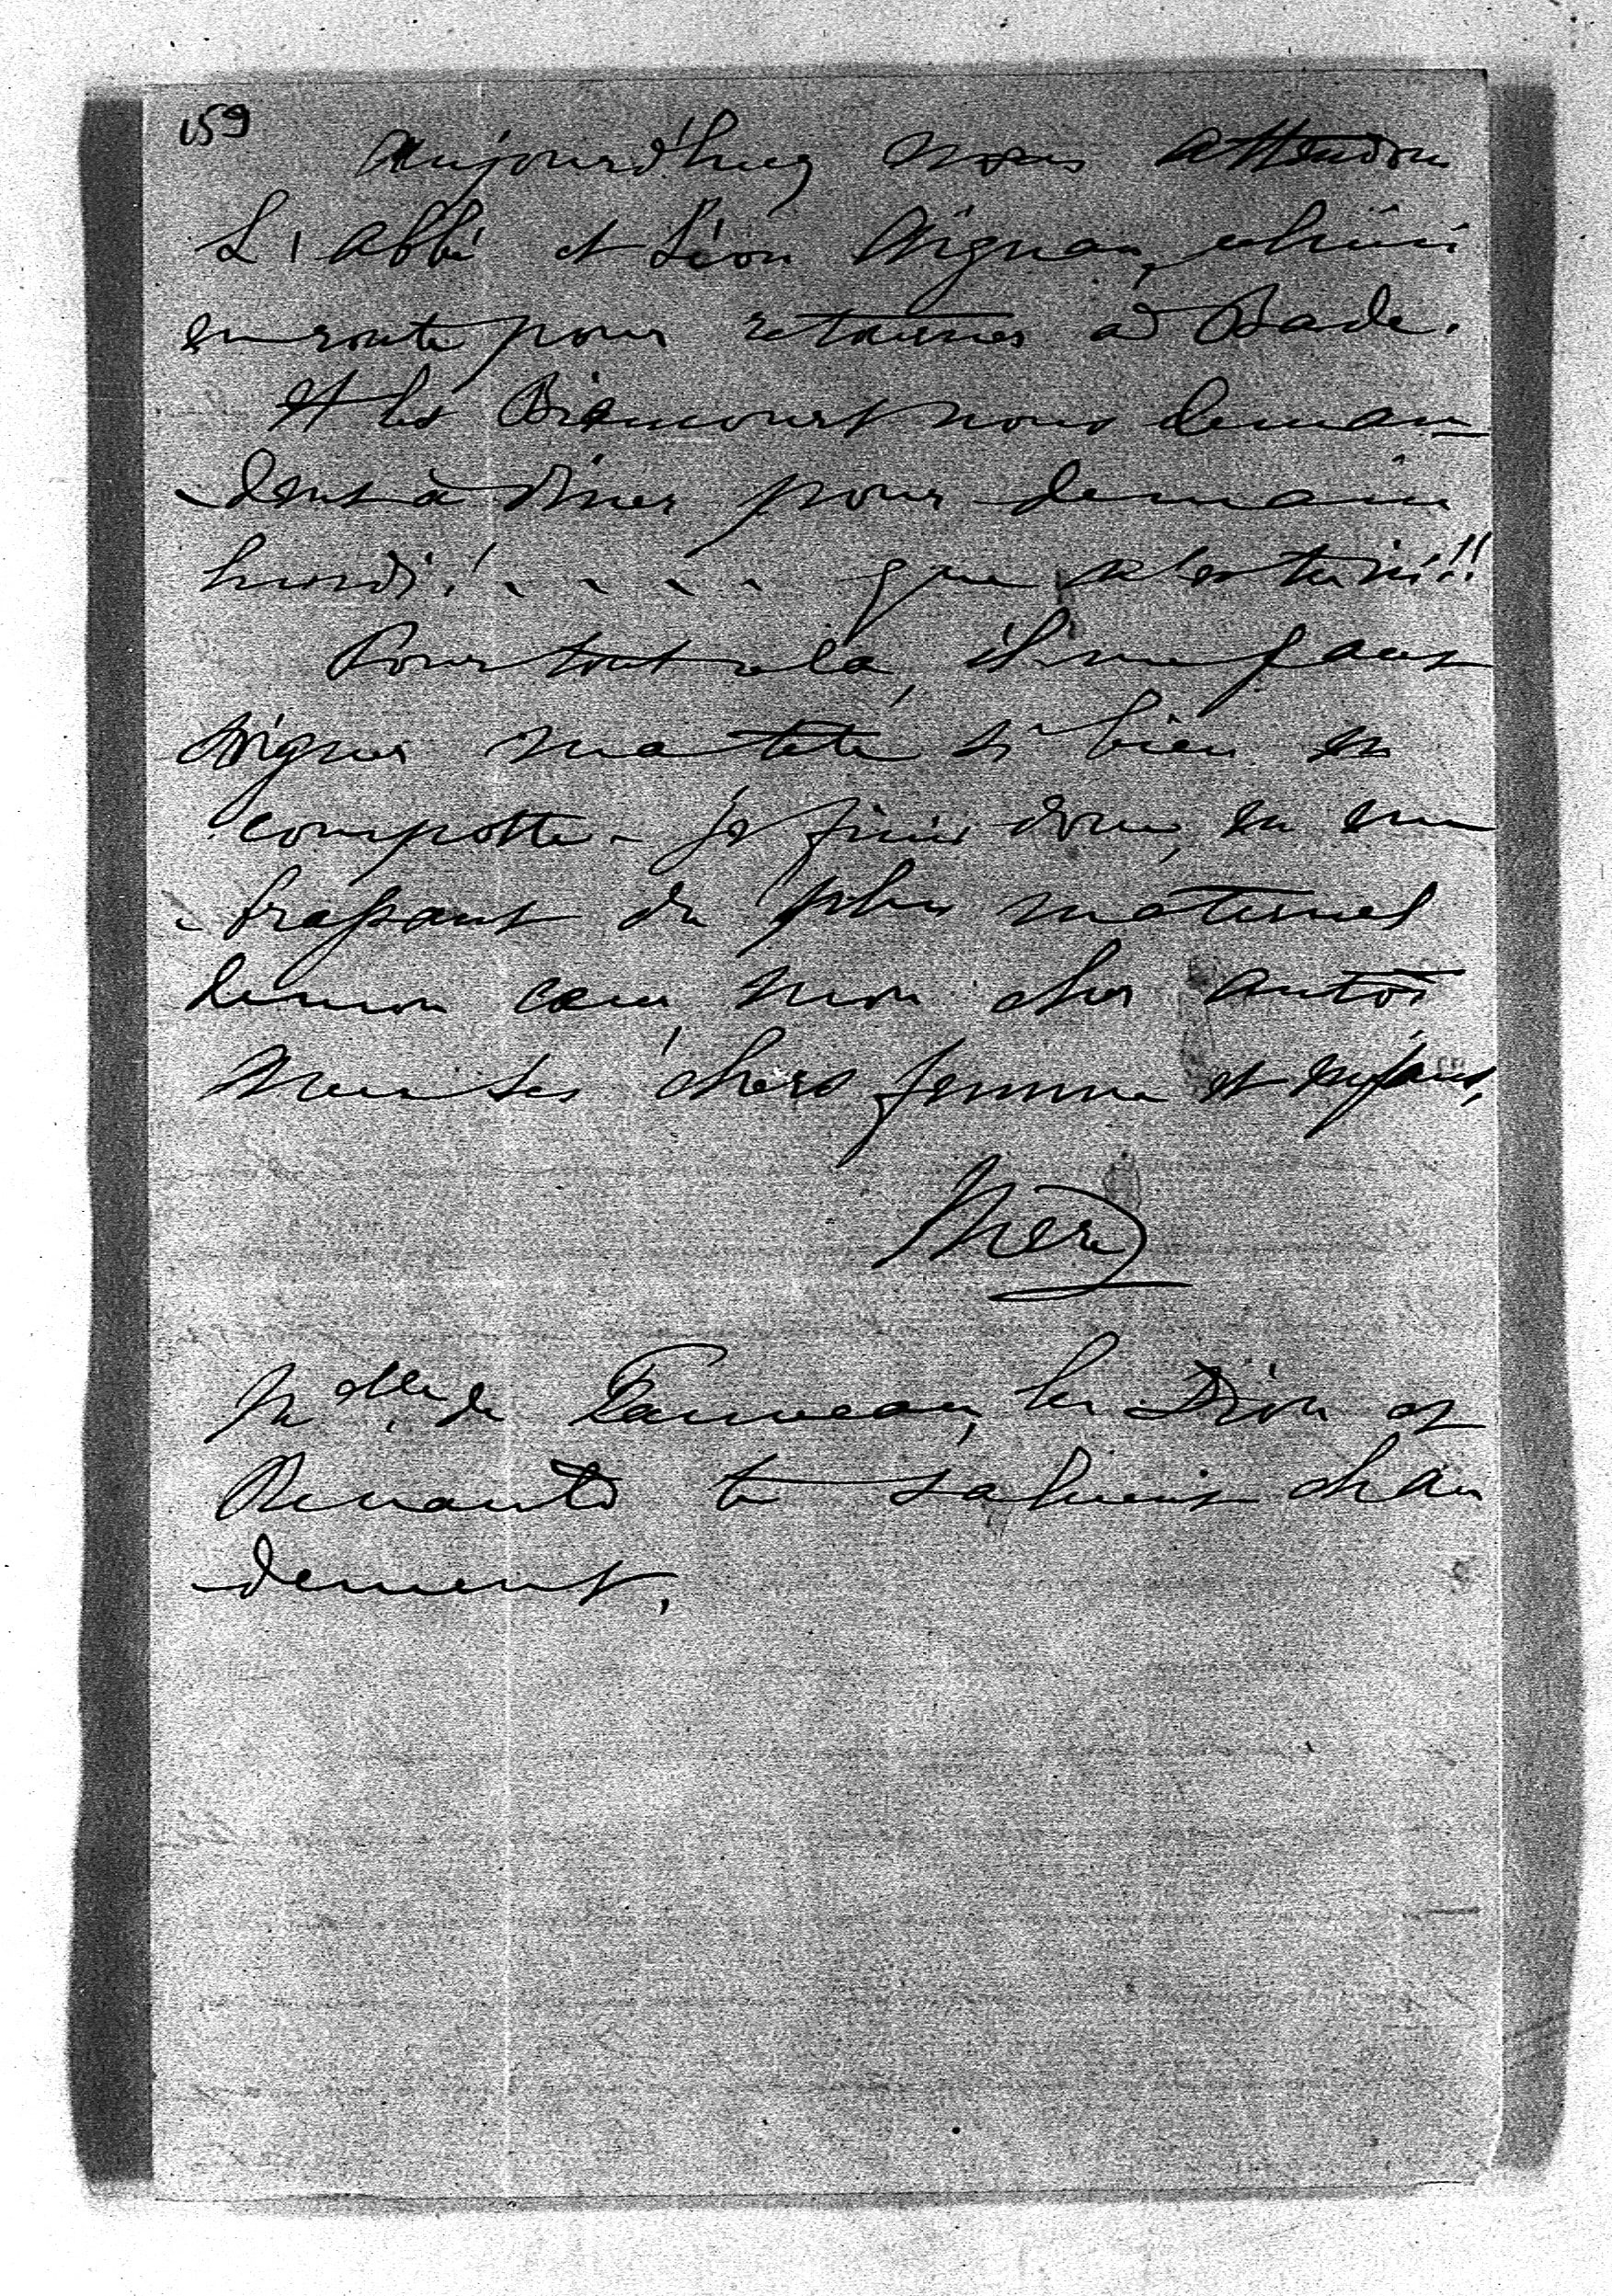 159
Aujourd'huy nous attendons
L'Abbé et Léon Aignan, celui ci
en route pour retourner à Bade.
Et les Biencourt nous deman-
-dent à diner pour demain
lundi! . . . . que
Pour tout cela, il me faut
soigner ma tête si bien en
compotte - je finis donc, en em
-brassant du plus maternel
de mon cœur mon cher Antoi
ne ses chers femme et enfants,
Mère
Melle de Fauveau, les Dion et
te saluent chau
-dement.